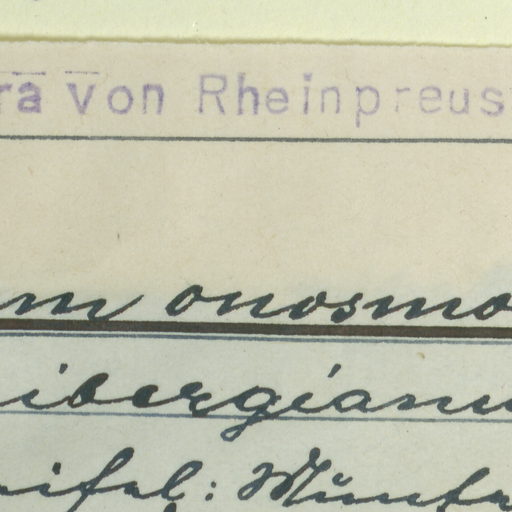 ra von Rheinpreus
m onosmo
ibergianu
ifel: Münst